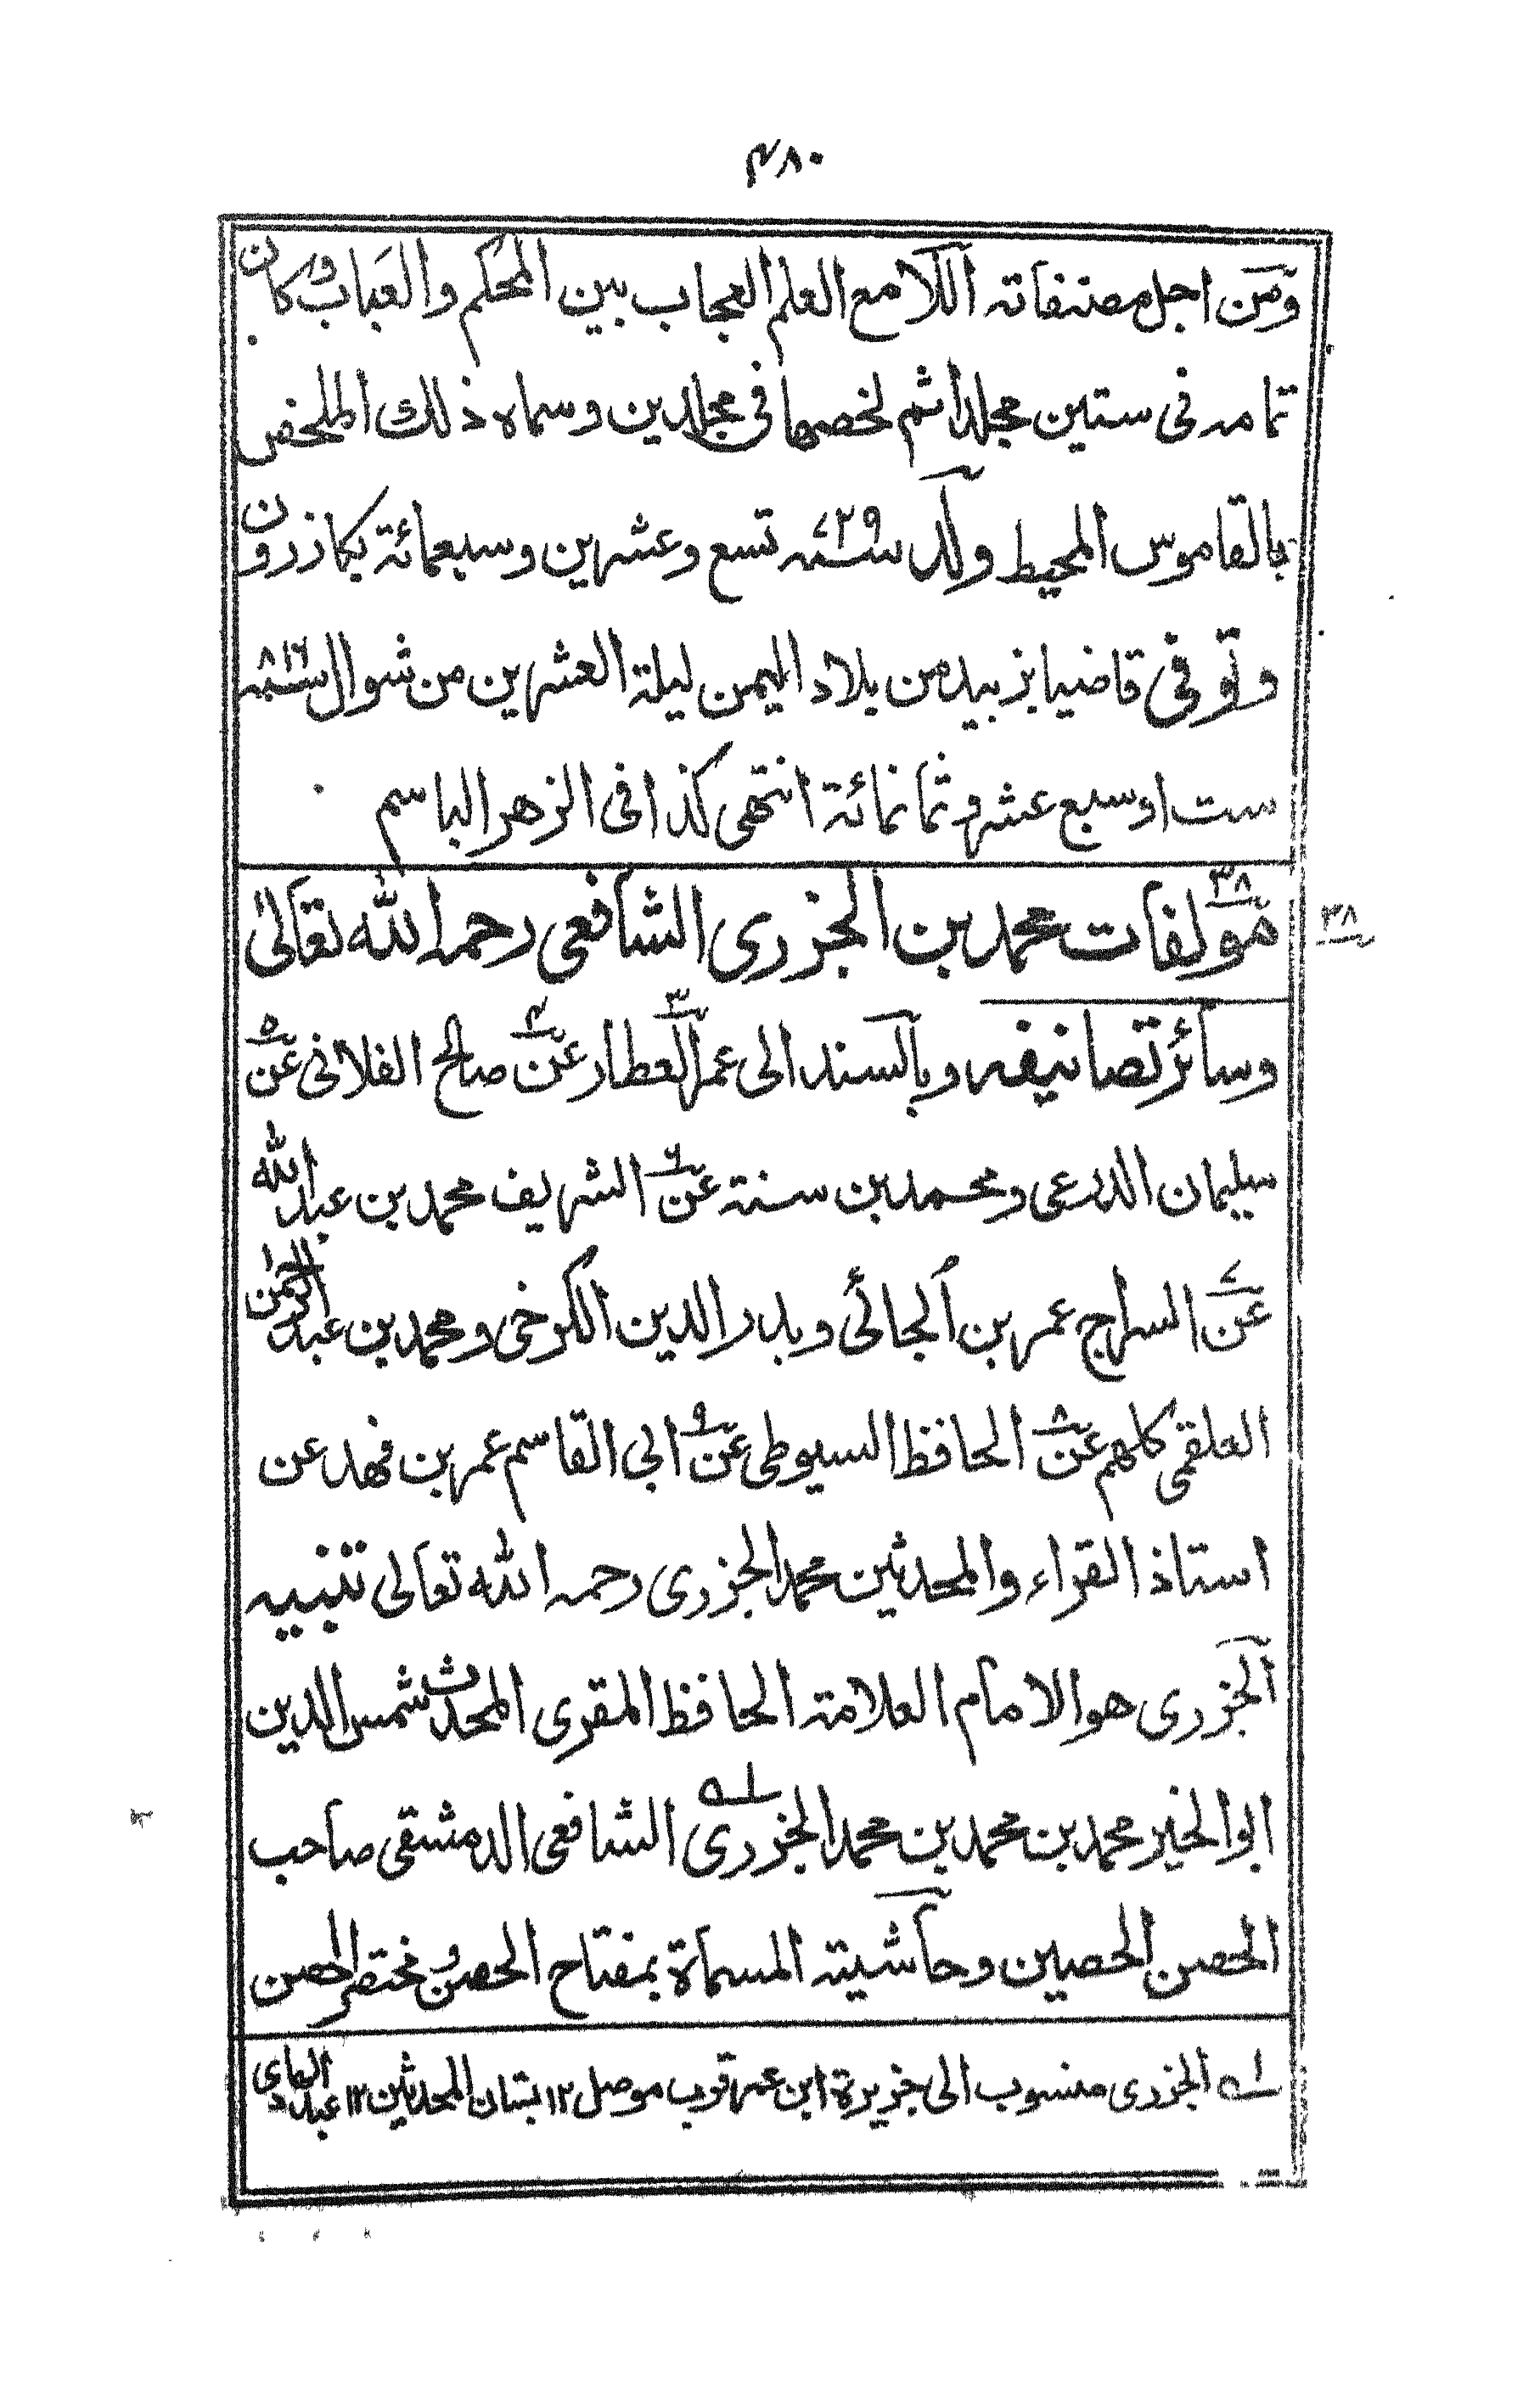 ٤٨٠
ومن اجل مصنفاته اللامع العلم العجاب بين المحكم والعباب وكان
تمامه فى ستين مجلدا ثم لخصها فى مجلدين وسماه ذلك الملخص
بالقاموس المحيط ولد سنة ٧٢٩ تسع وعشرين وسبعمائة بكازرون
وتوفى قاضيا بزبيد من بلاد اليمن ليلة العشرين من شوال سنة ٨١٦
ست او سبع عشر وثمانمائة انتهى كذا فى الزهر الباسم
٣٨ مؤلفات محمد بن الجزرى الشافعى رحمه الله تعالى
٣٨
وسائر تصانيفه وبالسند الى عمر العطار ٣ عن ٤ صالح الفلانى عن ٥
سليمان الدرعى ومحمد بن سنة عن ٦ الشريف محمد بن عبد الله
عن ٧ السراج عمر بن الجائى وبدر الدين الكرخى ومحمد بن عبد الرحمن
العلقمى كلهم عن ٨ الحافظ السيوطى عن ٩ ابى القاسم عمر بن فهد عن
استاذ القراء والمحدثين محمد الجزرى رحمه الله تعالى تنبيه
الجزرى هو الامام العلامة الحافظ المقرى المحدث شمس الدين
ابو الخير محمد بن محمد بن محمد الجزرى ا۵ الشافعى الدمشقى صاحب
الحصن الحصين وحاشيته المسماة بمفتاح الحصن ومختصر الحصن
ا۵ الجزرى منسوب الى جزيرة ابن عمر قرب موصل ١٢ بستان المحدثين ١٢ عبد الهادى